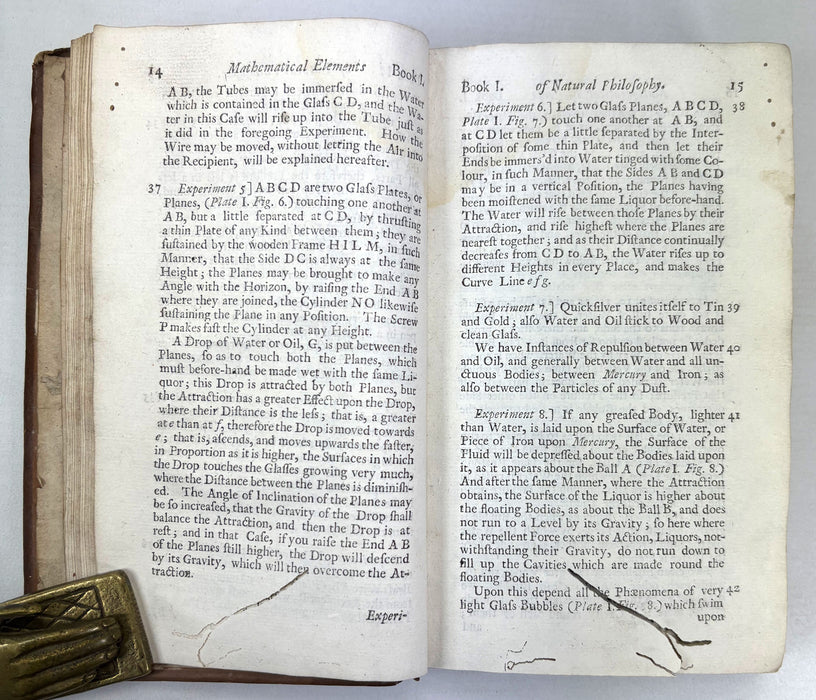 14 Mathematical Elements Book I.
A B, the Tubes may be immerſed in the Water
which is contained in the Glaſs C D, and the Wa-
ter in this Caſe will riſe up into the Tube juſt as
it did in the foregoing Experiment. How the
Wire may be moved, without letting the Air into
the Recipient, will be explained hereafter.
37 Experiment 5] A B C D are two Glaſs Plates, or
Planes, (Plate I. Fig. 6.) touching one another at
A B, but a little ſeparated at C D, by thruſting
a thin Plate of any Kind between them; they are
ſuſtained by the wooden Frame H I L M, in ſuch
Manner, that the Side D C is always at the ſame
Height; the Planes may be brought to make any
Angle with the Horizon, by raiſing the End A B
where they are joined, the Cylinder N O likewiſe
ſuſtaining the Plane in any Poſition. The Screw
P makes faſt the Cylinder at any Height.
A Drop of Water or Oil, G, is put between the
Planes, ſo as to touch both the Planes, which
muſt before-hand be made wet with the ſame Li-
quor; this Drop is attracted by both Planes, but
the Attraction has a greater Effect upon the Drop,
where their Diſtance is the leſs; that is, a greater
at e than at f, therefore the Drop is moved towards
e; that is, aſcends, and moves upwards the faſter,
in Proportion as it is higher, the Surfaces in which
the Drop touches the Glaſſes growing very much,
where the Diſtance between the Planes is diminiſh-
ed. The Angle of Inclination of the Planes may
be ſo increaſed, that the Gravity of the Drop ſhall
balance the Attraction, and then the Drop is at
reſt; and in that Caſe, if you raiſe the End A B
of the Planes ſtill higher, the Drop will deſcend
by its Gravity, which will then overcome the At-
traction.
Experi-
Book I. of Natural Philoſophy. 15
Experiment 6.] Let two Glaſs Planes, A B C D, 38
Plate I. Fig. 7.) touch one another at A B, and
at C D let them be a little ſeparated by the Inter-
poſition of ſome thin Plate, and then let their
Ends be immers'd into Water tinged with ſome Co-
lour, in ſuch Manner, that the Sides A B and C D
may be in a vertical Poſition, the Planes having
been moiſtened with the ſame Liquor before-hand.
The Water will riſe between thoſe Planes by their
Attraction, and riſe higheſt where the Planes are
neareſt together; and as their Diſtance continually
decreaſes from C D to A B, the Water riſes up to
different Heights in every Place, and makes the
Curve Line e f g.
Experiment 7.] Quickſilver unites itſelf to Tin 39
and Gold; alſo Water and Oil ſtick to Wood and
clean Glaſs.
We have Inſtances of Repulſion between Water 40
and Oil, and generally between Water and all un-
ctuous Bodies; between Mercury and Iron; as
alſo between the Particles of any Duſt.
Experiment 8.] If any greaſed Body, lighter 41
than Water, is laid upon the Surface of Water, or
Piece of Iron upon Mercury, the Surface of the
Fluid will be depreſſed about the Bodies laid upon
it, as it appears about the Ball A (Plate I. Fig. 8.)
And after the ſame Manner, where the Attraction
obtains, the Surface of the Liquor is higher about
the floating Bodies, as about the Ball B, and does
not run to a Level by its Gravity; ſo here where
the repellent Force exerts its Action, Liquors, not-
withſtanding their Gravity, do not run down to
fill up the Cavities which are made round the
floating Bodies.
Upon this depend all the Phænomena of very 42
light Glaſs Bubbles (Plate I. Fig. 8.) which ſwim
upon